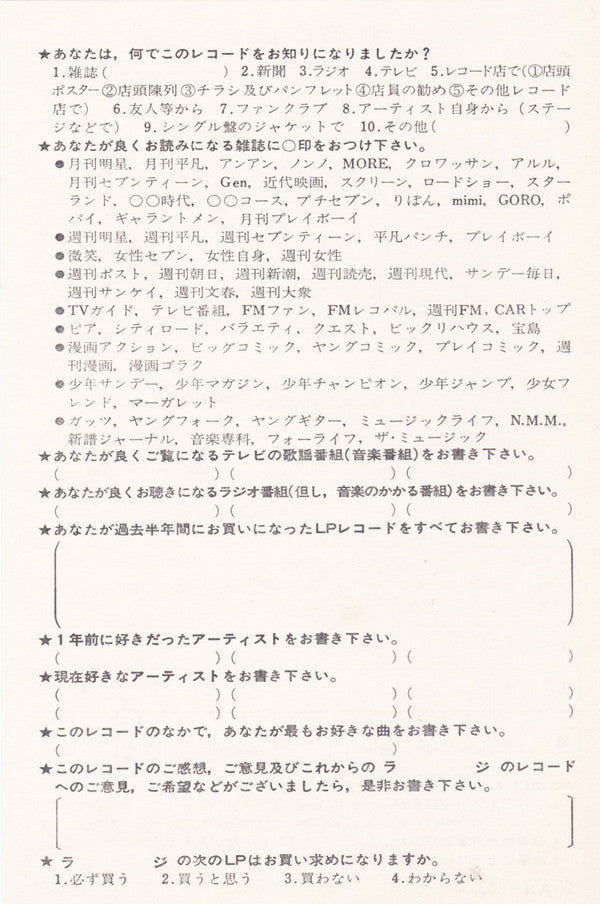 ★あなたは，何でこのレコードをお知りになりましたか？
1.雑誌(　　　　　　　) 2.新聞 3.ラジオ 4.テレビ 5.レコード店で(①店頭
ポスター②店頭陳列③チラシ及びパンフレット④店員の勧め⑤その他レコード
店で) 6.友人等から 7.ファンクラブ 8.アーティスト自身から (ステー
ジなどで) 9.シングル盤のジャケットで 10.その他(　　　　　　　)
★あなたが良くお読みになる雑誌に○印をおつけ下さい。
●月刊明星，月刊平凡，アンアン，ノンノ，MORE，クロワッサン，アルル，
月刊セブンティーン，Gen，近代映画，スクリーン，ロードショー，スター
ランド，○○時代，○○コース，プチセブン，りぼん，mimi，GORO，ポ
パイ，ギャラントメン，月刊プレイボーイ
●週刊明星，週刊平凡，週刊セブンティーン，平凡パンチ，プレイボーイ
●微笑，女性セブン，女性自身，週刊女性
●週刊ポスト，週刊朝日，週刊新潮，週刊読売，週刊現代，サンデー毎日，
週刊サンケイ，週刊文春，週刊大衆
●TVガイド，テレビ番組，FMファン，FMレコパル，週刊FM，CARトップ
●ピア，シティロード，バラエティ，クエスト，ビックリハウス，宝島
●漫画アクション，ビッグコミック，ヤングコミック，プレイコミック，週
刊漫画，漫画ゴラク
●少年サンデー，少年マガジン，少年チャンピオン，少年ジャンプ，少女フ
レンド，マーガレット
●ガッツ，ヤングフォーク，ヤングギター，ミュージックライフ，N.M.M.，
新譜ジャーナル，音楽専科，フォーライフ，ザ・ミュージック
★あなたが良くご覧になるテレビの歌謡番組(音楽番組)をお書き下さい。
(　　　　　　　) (　　　　　　　) (　　　　　　　)
★あなたが良くお聴きになるラジオ番組(但し，音楽のかかる番組)をお書き下さい。
(　　　　　　　) (　　　　　　　) (　　　　　　　)
★あなたが過去半年間にお買いになったLPレコードをすべてお書き下さい。
★1年前に好きだったアーティストをお書き下さい。
(　　　　　　　) (　　　　　　　) (　　　　　　　)
★現在好きなアーティストをお書き下さい。
(　　　　　　　) (　　　　　　　) (　　　　　　　)
(　　　　　　　) (　　　　　　　) (　　　　　　　)
★このレコードのなかで，あなたが最もお好きな曲をお書き下さい。
(　　　　　　　　　　　　　　　)
★このレコードのご感想，ご意見及びこれからの ラ　　　　ジ のレコード
へのご意見，ご希望などがございましたら，是非お書き下さい。
★ ラ　　　　ジ の次のLPはお買い求めになりますか。
1.必ず買う 2.買うと思う 3.買わない 4.わからない